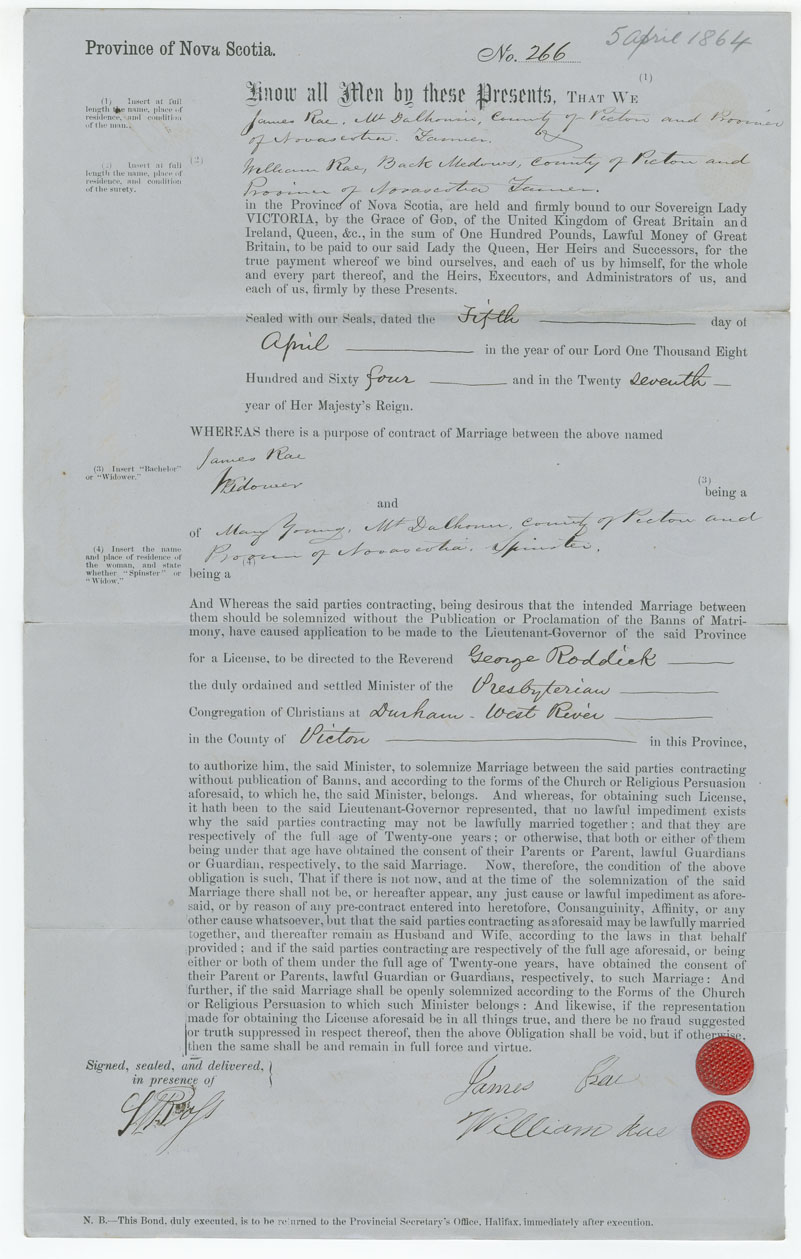 5 April 1864
Province of Nova Scotia.
No. 266
(1)
Know all Men by these Presents, THAT WE
(1) Insert at full
length the name, place of
residence, and condition
of the man.
James Rae, Mt Dalhousie, County of Pictou and Province
of Novascotia. Farmer.
(2) Insert at full
length the name, place of
residence, and condition
of the surety.
(2)
William Rae, Back Medows, County of Pictou and
Province of Novascotia Farmer.
in the Province of Nova Scotia, are held and firmly bound to our Sovereign Lady
VICTORIA, by the Grace of GOD, of the United Kingdom of Great Britain and
Ireland, Queen, &c., in the sum of One Hundred Pounds, Lawful Money of Great
Britain, to be paid to our said Lady the Queen, Her Heirs and Successors, for the
true payment whereof we bind ourselves, and each of us by himself, for the whole
and every part thereof, and the Heirs, Executors, and Administrators of us, and
each of us, firmly by these Presents.
Sealed with our Seals, dated the Fifth day of
April in the year of our Lord One Thousand Eight
Hundred and Sixty four and in the Twenty seventh
year of Her Majesty's Reign.
WHEREAS there is a purpose of contract of Marriage between the above named
James Rae
(3) Insert "Bachelor"
or "Widower."
Widower
(3)
being a
and
of Mary Young, Mt Dalhousie, County of Pictou and
Province of Novascotia. Spinster.
(4) Insert the name
and place of residence of
the woman, and state
whether "Spinster" or
"Widow."
(4)
being a
And Whereas the said parties contracting, being desirous that the intended Marriage between
them should be solemnized without the Publication or Proclamation of the Banns of Matri-
mony, have caused application to be made to the Lieutenant-Governor of the said Province
for a License, to be directed to the Reverend George Roddick
the duly ordained and settled Minister of the Presbyterian
Congregation of Christians at Durham - West River
in the County of Pictou in this Province,
to authorize him, the said Minister, to solemnize Marriage between the said parties contracting
without publication of Banns, and according to the forms of the Church or Religious Persuasion
aforesaid, to which he, the said Minister, belongs. And whereas, for obtaining such License,
it hath been to the said Lieutenant-Governor represented, that no lawful impediment exists
why the said parties contracting may not be lawfully married together; and that they are
respectively of the full age of Twenty-one years; or otherwise, that both or either of them
being under that age have obtained the consent of their Parents or Parent, lawful Guardians
or Guardian, respectively, to the said Marriage. Now, therefore, the condition of the above
obligation is such, That if there is not now, and at the time of the solemnization of the said
Marriage there shall not be, or hereafter appear, any just cause or lawful impediment as afore-
said, or by reason of any pre-contract entered into heretofore, Consanguinity, Affinity, or any
other cause whatsoever, but that the said parties contracting as aforesaid may be lawfully married
together, and thereafter remain as Husband and Wife, according to the laws in that behalf
provided; and if the said parties contracting are respectively of the full age aforesaid, or being
either or both of them under the full age of Twenty-one years, have obtained the consent of
their Parent or Parents, lawful Guardian or Guardians, respectively, to such Marriage: And
further, if the said Marriage shall be openly solemnized according to the Forms of the Church
or Religious Persuasion to which such Minister belongs: And likewise, if the representation
made for obtaining the License aforesaid be in all things true, and there be no fraud suggested
or truth suppressed in respect thereof, then the above Obligation shall be void, but if otherwise,
then the same shall be and remain in full force and virtue.
Signed, sealed, and delivered,
in presence of
James Rae
William Rae
N. B.—This Bond, duly executed, is to be returned to the Provincial Secretary's Office, Halifax, immediately after execution.